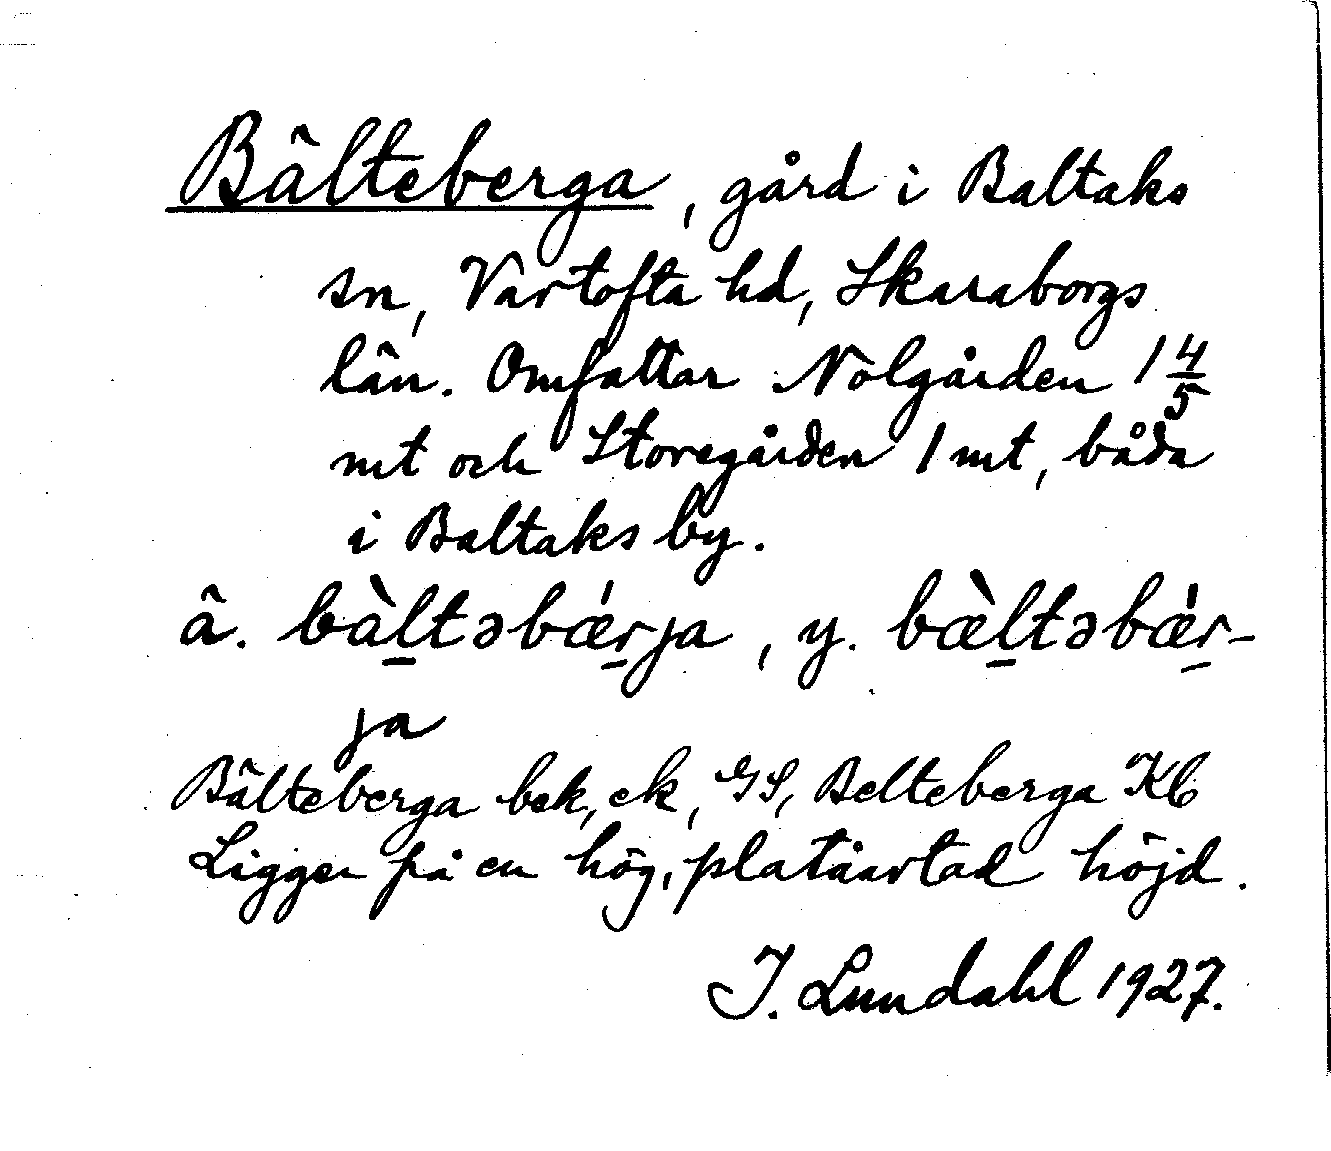 Bälteberga, gård i Baltaks
sn, Vartofta hd, Skaraborgs
län. Omfattar Nolgården 1 4/5
mt och Storegården 1 mt, båda
i Baltaks by.
ä. bàl̠təbǽr̠ja, y. bæ̀l̠təbǽr̠-
ja
Bälteberga bek, ek, GS, Belteberga Kb
Ligger på en hög, platåartad höjd.
I. Lundahl 1927.